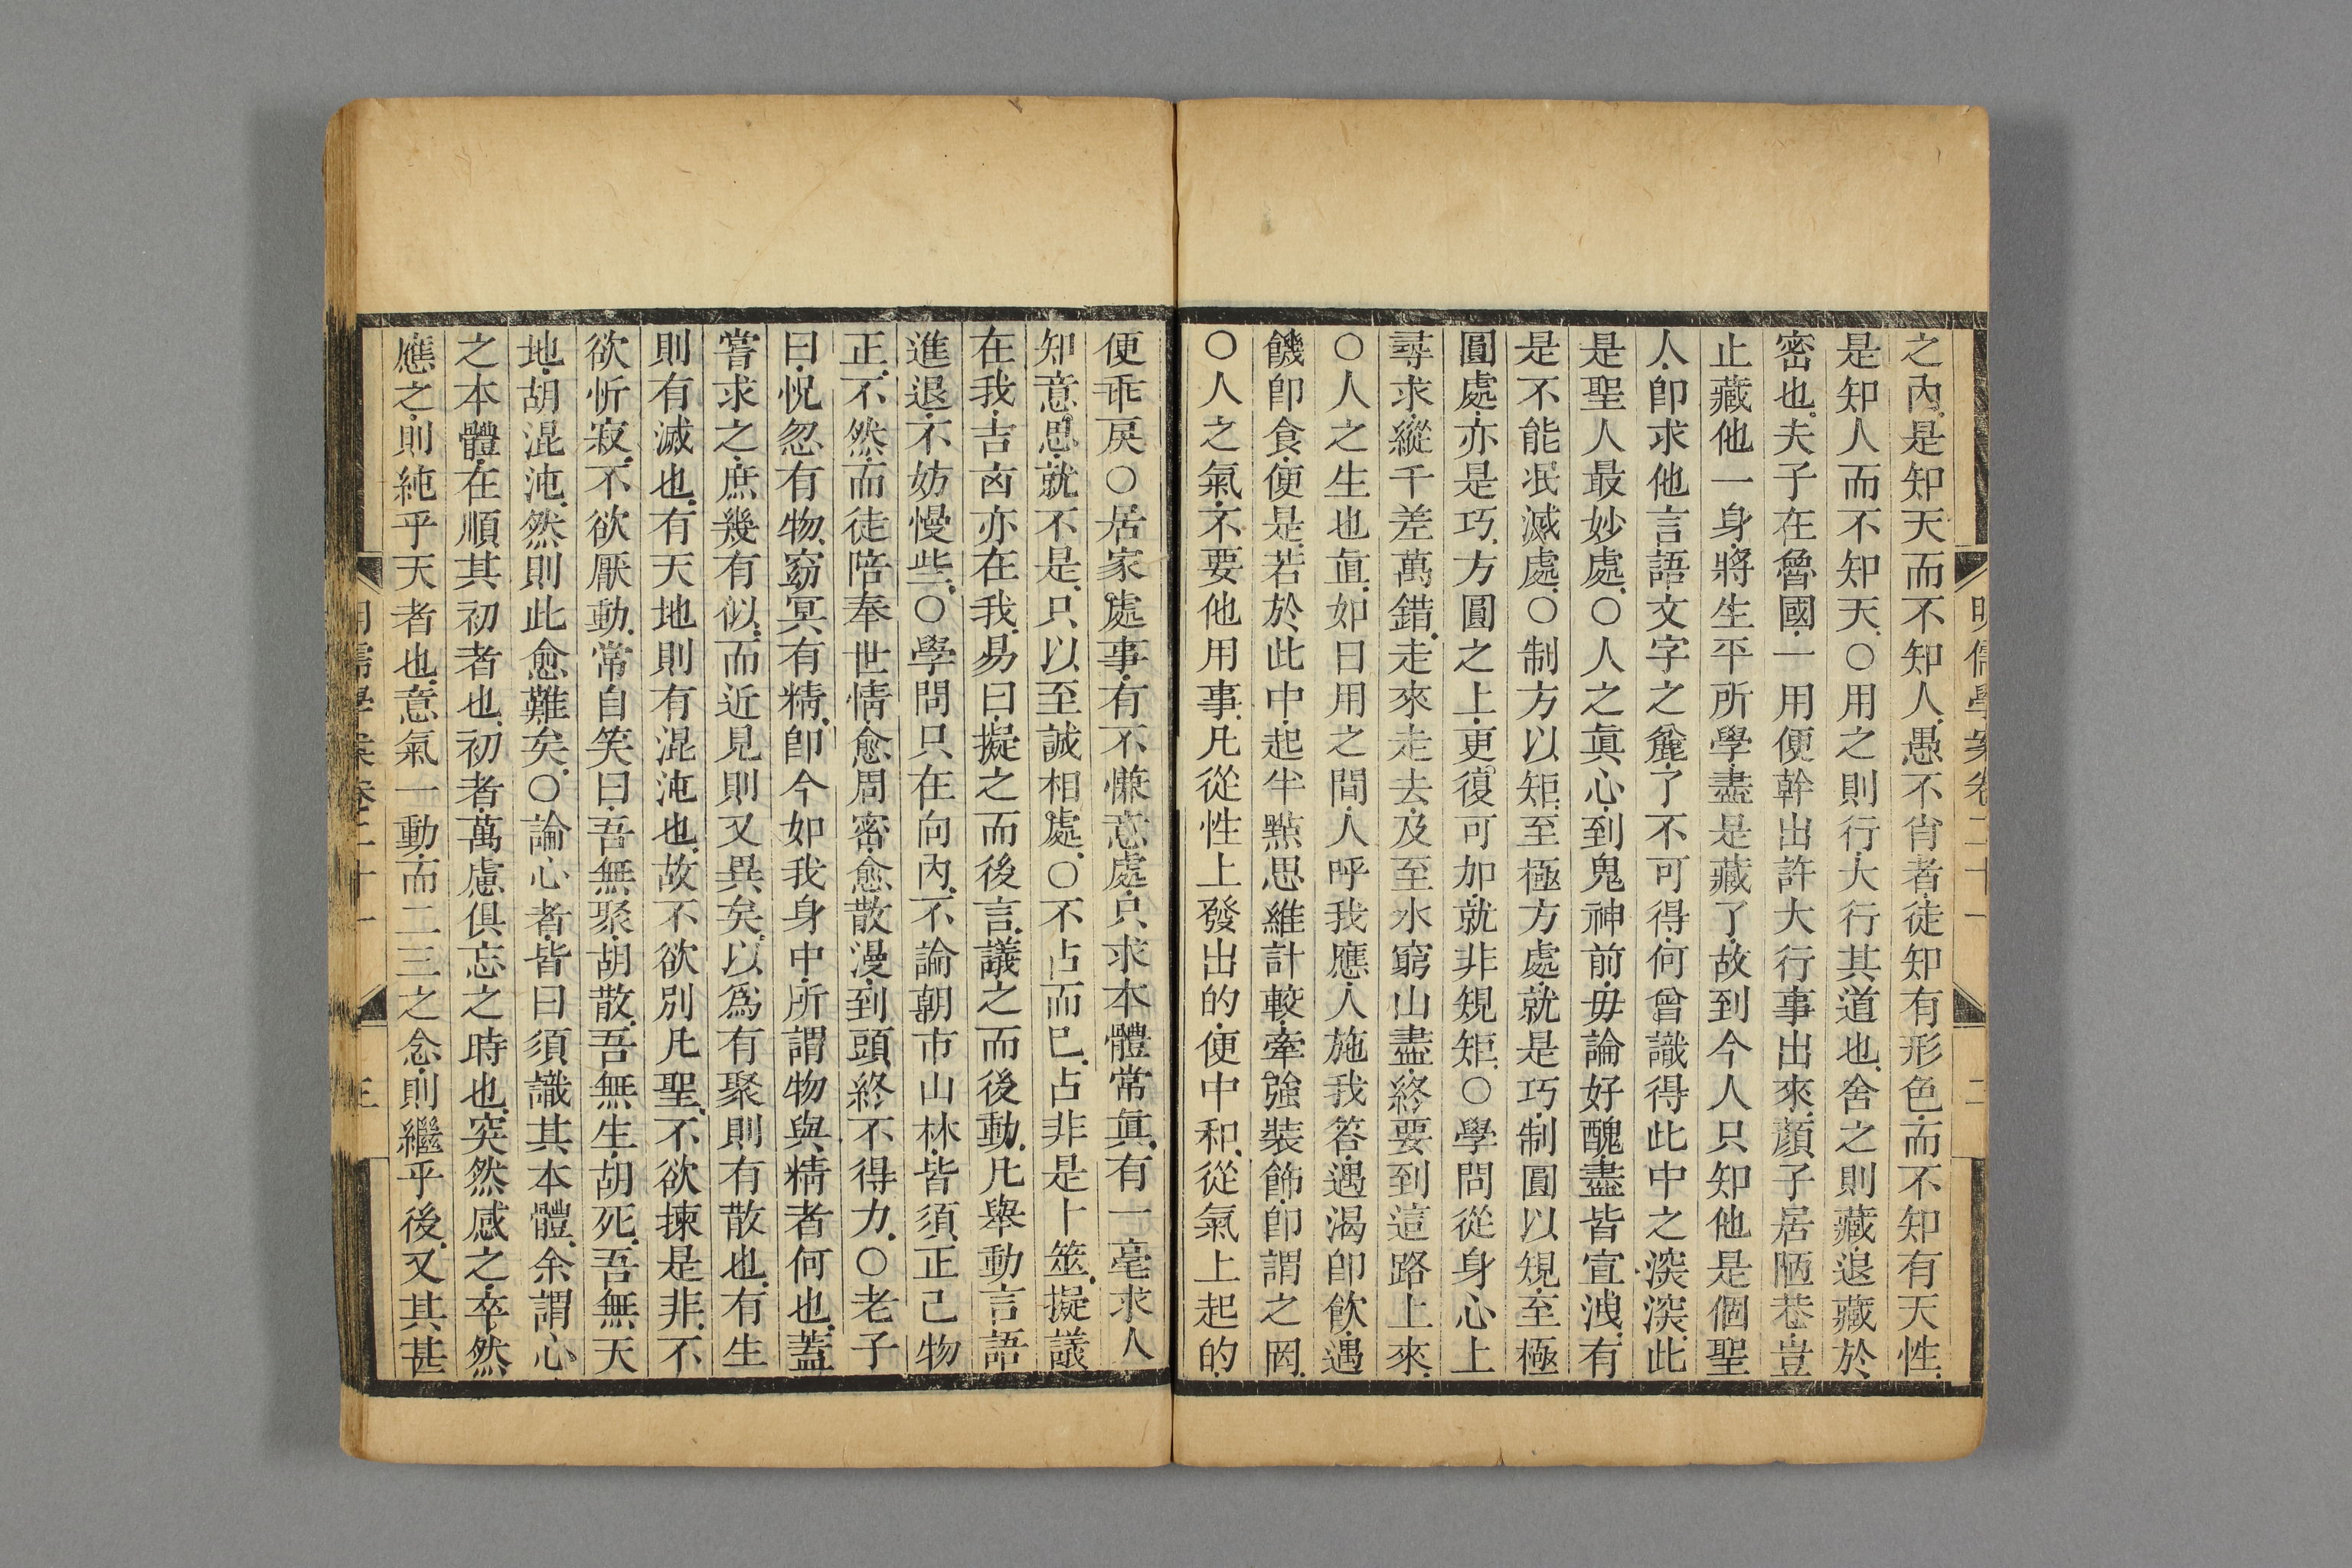 明儒學案卷二十一
二
之內是知天而不知人愚不肖者徒知有形色而不知有天性
是知人而不知天○用之則行大行其道也舍之則藏退藏於
密也夫子在魯國一用便幹出許大行事出來顏子居陋巷豈
止藏他一身將生平所學盡是藏了故到今人只知他是個聖
人卽求他言語文字之麄了不可得何曾識得此中之深深此
是聖人最妙處○人之眞心到鬼神前毋論好醜盡皆宣洩有
是不能泯滅處○制方以矩至極方處就是巧制圓以規至極
圓處亦是巧方圓之上更復可加就非規矩○學問從身心上
尋求縱千差萬錯走來走去及至水窮山盡終要到這路上來
○人之生也直如日用之間人呼我應人施我答遇渴卽飲遇
饑卽食便是若於此中起半點思維計較牽強裝飾卽謂之罔
○人之氣不要他用事凡從性上發出的便中和從氣上起的
便乖戾○居家處事有不慊意處只求本體常眞有一毫求人
知意思就不是只以至誠相處○不占而已占非是卜筮擬議
在我吉凶亦在我易曰擬之而後言議之而後動凡舉動言語
進退不妨慢些○學問只在向內不論朝市山林皆須正己物
正不然而徒陪奉世情愈周密愈散漫到頭終不得力○老子
曰恍忽有物窈冥有精卽今如我身中所謂物與精者何也蓋
嘗求之庶幾有似而近見則又異矣以爲有聚則有散也有生
則有滅也有天地則有混沌也故不欲別凡聖不欲揀是非不
欲忻寂不欲厭動常自笑曰吾無聚胡散吾無生胡死吾無天
地胡混沌然則此愈難矣○論心者皆曰須識其本體余謂心
之本體在順其初者也初者萬慮俱忘之時也突然感之卒然
應之則純乎天者也意氣一動而二三之念則繼乎後又其甚
明儒學案卷二十一
三